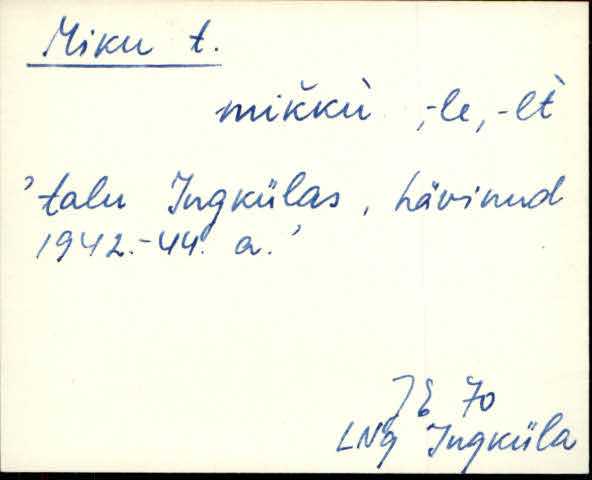 Miku t.
mik̆kù, -le, -lt̀
'talu Ingkülas, hävinud
1942.-44. a.'
JE 70
LNg Ingküla